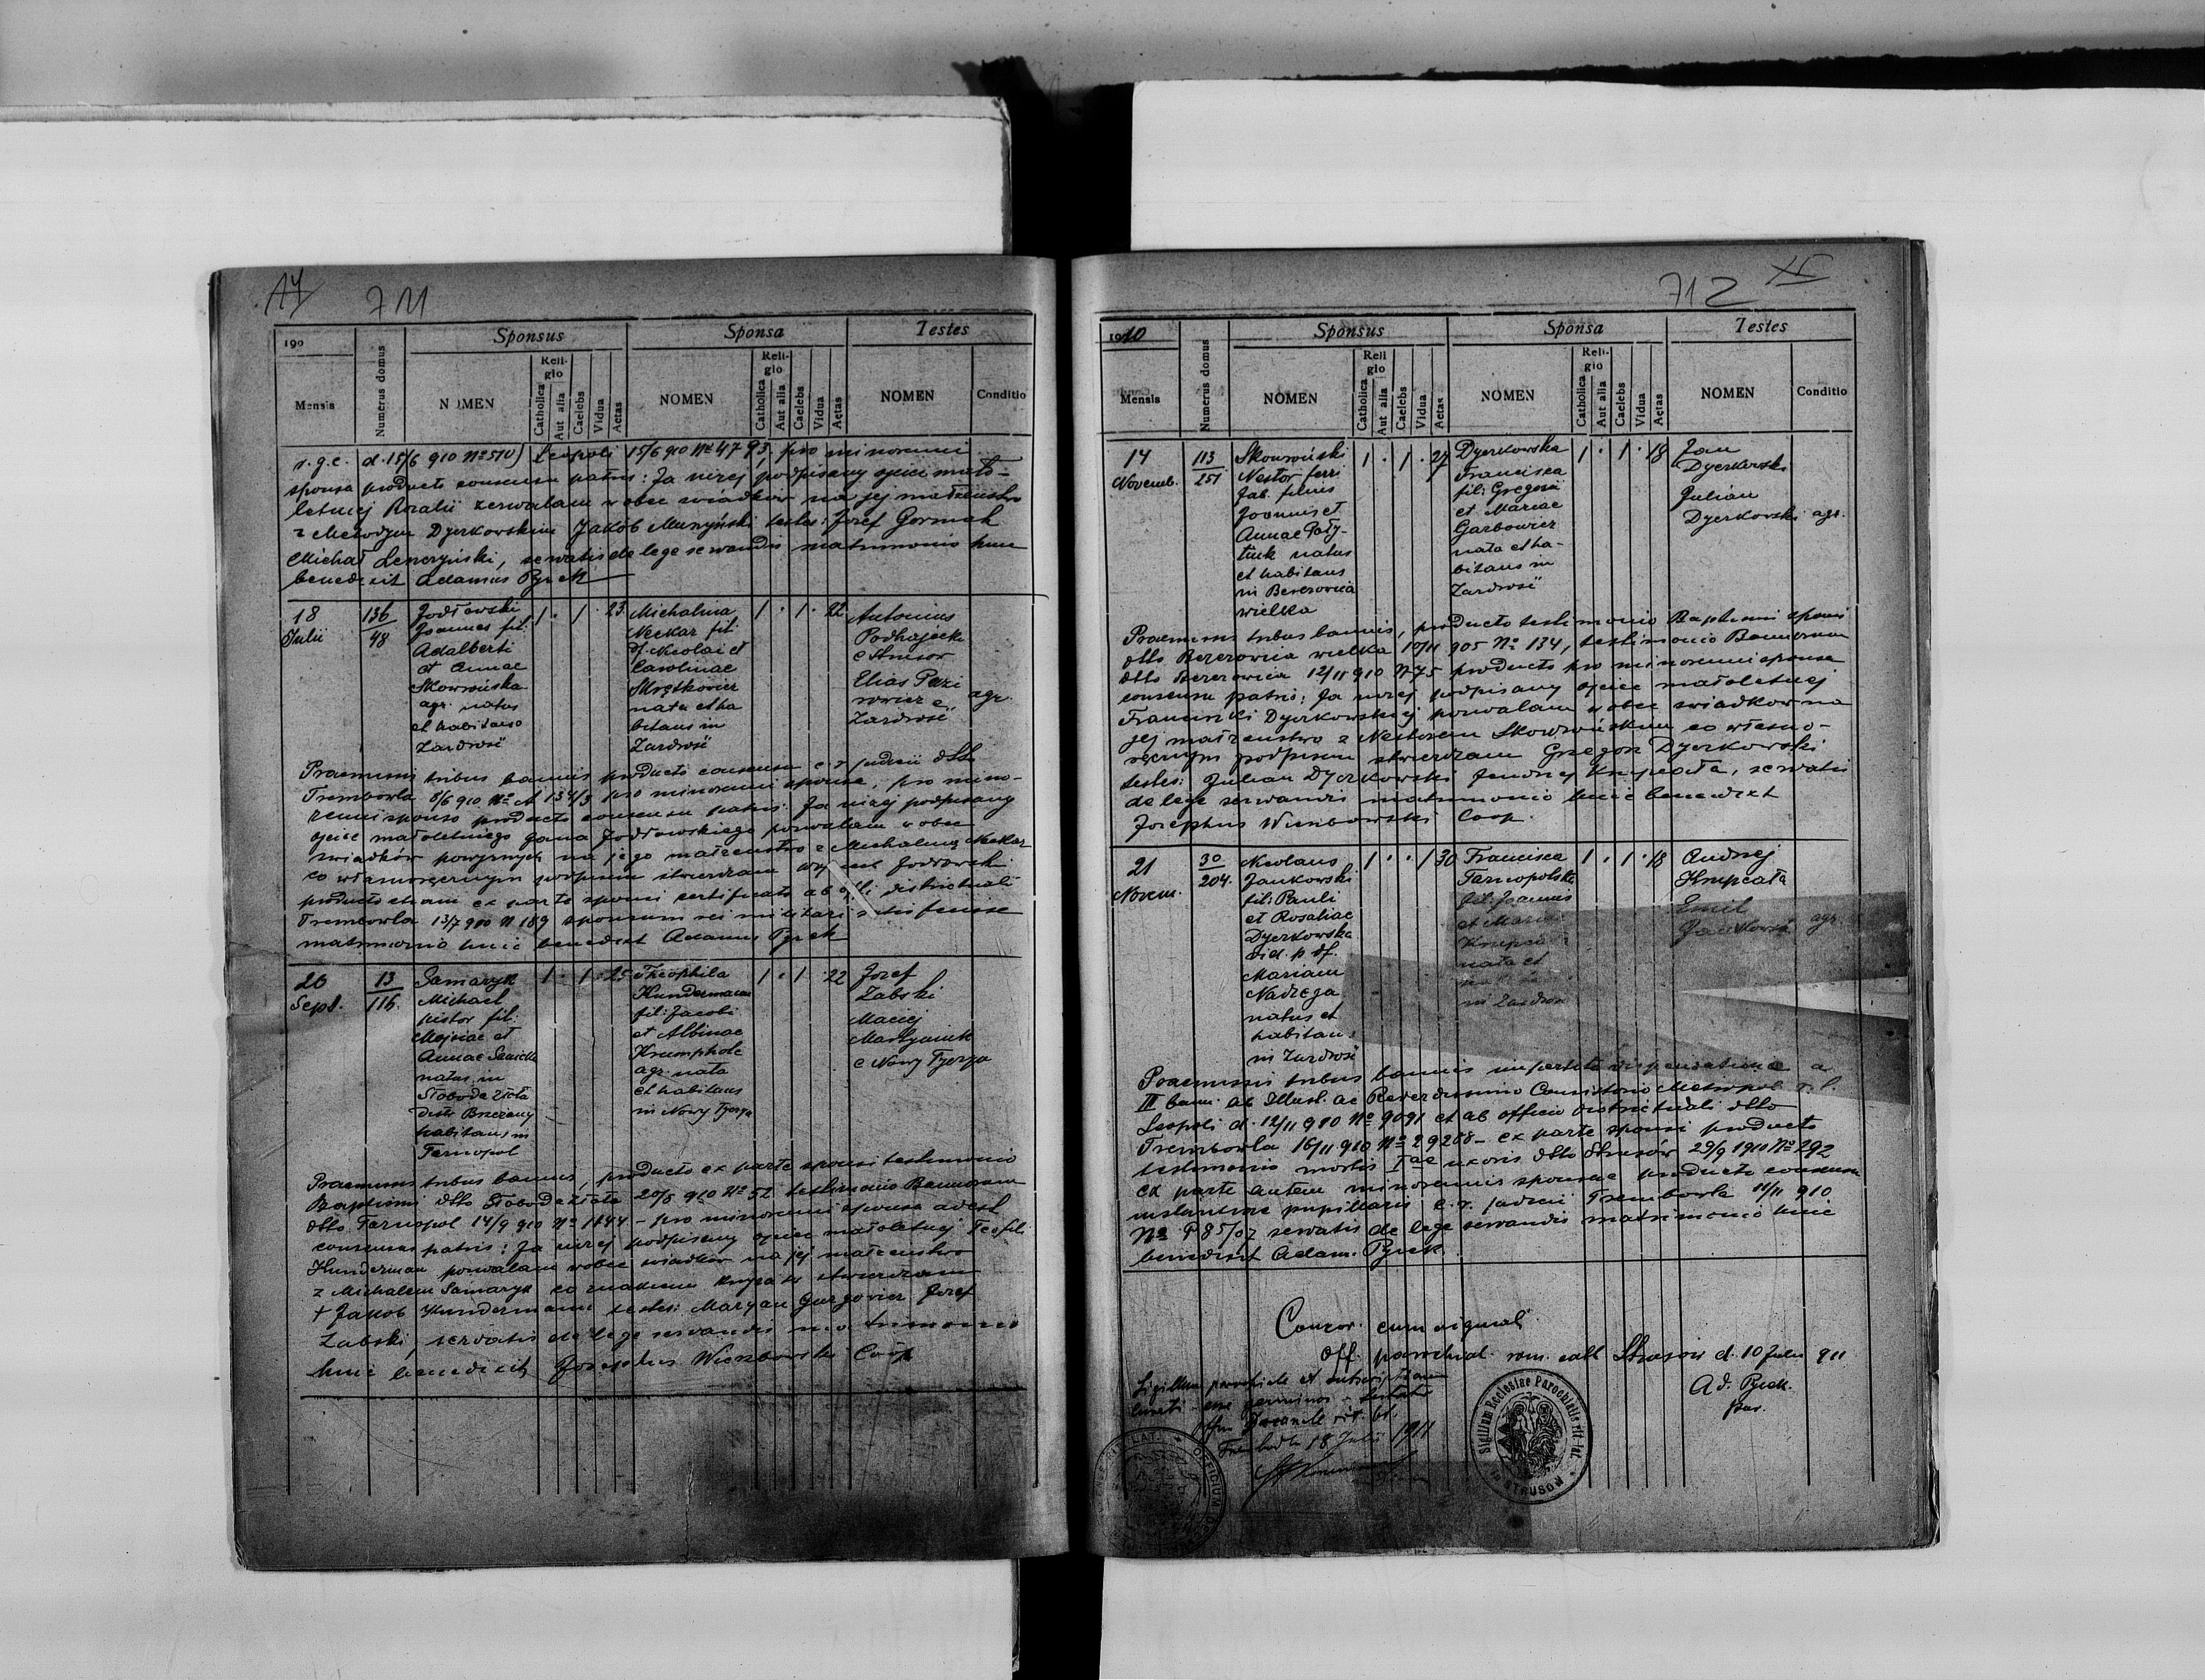 14
711
190
Mensis
Numerus domus
Sponsus
NOMEN
Religio
Catholica
Aut alia
Caelebs
Vidua
Aetas
Sponsa
NOMEN
Religio
Catholica
Aut alia
Caelebs
Vidua
Aetas
Testes
NOMEN
Conditio
r. g. c. d. 15/6 910 No 510) Leopoli 15/6 910 No 4793, pro minorenni
sponsa producti consensu patris: Ja niżej podpisany ojciec mało-
letniej Rozalii zezwalam wobec świadków na jej małżeństwo
z Metodym Dyczkowskim Jakób Muzyński testes: Józef Gormak
Michał Lenczyński, servatis de lege servandis matrimonio huic
benedixit Adamus Pyrek
18
Julii
136
48
Jodłowski
Joannes fil:
Adalberti
et Annae
Skowrońska
agr. natus
et habitans
Zazdrość
1 . 1 . 23
Michalina
Neckar fil:
Nicolai et
Carolinae
nata et ha
bitans in
Zazdrość
1 . 1 . 22
Antonius
Podhajecki
e Strusow
Elias
e
Zazdrość
agr.
Praemissis tribus bannis producto consensu c. r. judicii dtto
Trembowla 8/6 910 No pro minorenni sponsa, pro mino-
renni sponso producto consensu patris: Ja niżej podpisany
ojciec małoletniego Jana Jodłowskiego pozwalam wobec
świadków na jego małżeństwo z Michaliną Neckar
co własnoręcznym podpisem stwierdzam Jodłowski
producto etiam ex parte sponsi certificato ab offi. districtuali
Trembowla 13/7 910 N 189 sponsum rei militari satisfecisse
matrimonio huic benedixit Adamus Pyrek
26
Sept.
13
116.
Samaryk
Michael
pistor fil:
et
Annae
natus in
Słoboda złota
distr Brzeżany
habitans in
Tarnopol
1 . 1 . 25
Theophila
Kundermann
fil: Jacobi
et Albinae
Krumpholc
agr. nata
et habitans
in Nowy Tyczyn
1 . 1 . 22
Jozef
Zabski
Maciej
Martyniuk
e Nowy
Praemissis tribus bannis, producto ex parte sponsi testimonio
Baptismi dtto Słoboda złota 20/8 910 No 52 testimonio Bannorum
dtto Tarnopol 14/9 910 No 1844 - pro minorenni sponsa adest
consensus patris: Ja niżej podpisany ojciec małoletniej Teofili
Kunderman pozwalam wobec świadków na jej małżeństwo
z Michałem Samaryk co znakiem krzyża stwierdzam
+ Jakób Kundermann testes: Maryan Gurgowicz Jozef
Zabski, servatis de lege servandis matrimonio
huic benedixit Josephus Wierzbowski Coop
712
1910
Mensis
Numerus domus
Sponsus
NOMEN
Religio
Catholica
Aut alia
Caelebs
Vidua
Aetas
Sponsa
NOMEN
Religio
Catholica
Aut alia
Caelebs
Vidua
Aetas
Testes
NOMEN
Conditio
14
Novemb.
113
251
Skowroński
Nestor ferri
fab. filius
Joannis et
Annae Poły-
tiuk natus
et habitans
in Berezowica
wielka
1 . 1 . 27
Dyczkowska
Francisca
fil: Gregorii
et Mariae
Garbowicz
nata et ha-
bitans in
Zazdrość
1 . 1 . 18
Jan
Dyczkowski
Julian
Dyczkowski agr.
Praemissis tribus bannis, producto testimonio Baptismi sponsi
dtto Berezowica wielka 10/11 905 No 134, testimonio Bannorum
dtto Berezowica 12/11 910 N 75 producto pro minorenni sponsa
consensu patris: Ja niżej podpisany ojciec małoletniej
Franciszki Dyczkowskiej pozwalam wobec świadków na
jej małżeństwo z Nestorem Skowrońskim co własno-
ręcznym podpisem stwierdzam Gregor Dyczkowski
testes: Julian Dyczkowski Jendrzej Krupcała, servatis
de lege servandis matrimonio huic benedixit
Josephus Wierzbowski Coop.
21
Novem.
30
204.
Nicolaus
Jankowski
fil: Pauli
et Rosaliae
Dyczkowska
vid. p. df.
Mariam
Nadzega
natus et
habitans
in Zazdrość
1 . . 1 30
Francisca
Tarnopolska
fil: Joannis
et Mariae
nata et
in Zazdrość
1 . 1 . 18
Andrzej
Krupcała
Emil
Jankowski agr.
Praemissis tribus bannis impertita dispensatione a
III bann. ab Illust. ac Reverendissimo Consistorio Metropol. r. l.
Leopoli d. 12/11 910 No 9091 et ab officio districtuali dtto
Trembowla 16/11 910 No 29258 - ex parte sponsi producto
testimonio mortis Iae uxoris dtto Strusów 29/9 1910 No 292
ex parte autem minorennis sponsae producto consensu
instantiae pupillaris c. r. judicii Trembowla 11/11 910
No P 85/07 servatis de lege servandis matrimonio huic
benedixit Adam. Pyrek
Concor. cum originali
Off. parochial. rom. cath Strusow d. 10 Julii 911
Ad. Pyrek.
Par.
Sigillum parochiale et subscriptionem
18 Julii 1911
Sigillum Ecclesiae Parochialis rit. lat.
in STRUSÓW
RIT. LAT.
OFFICIUM